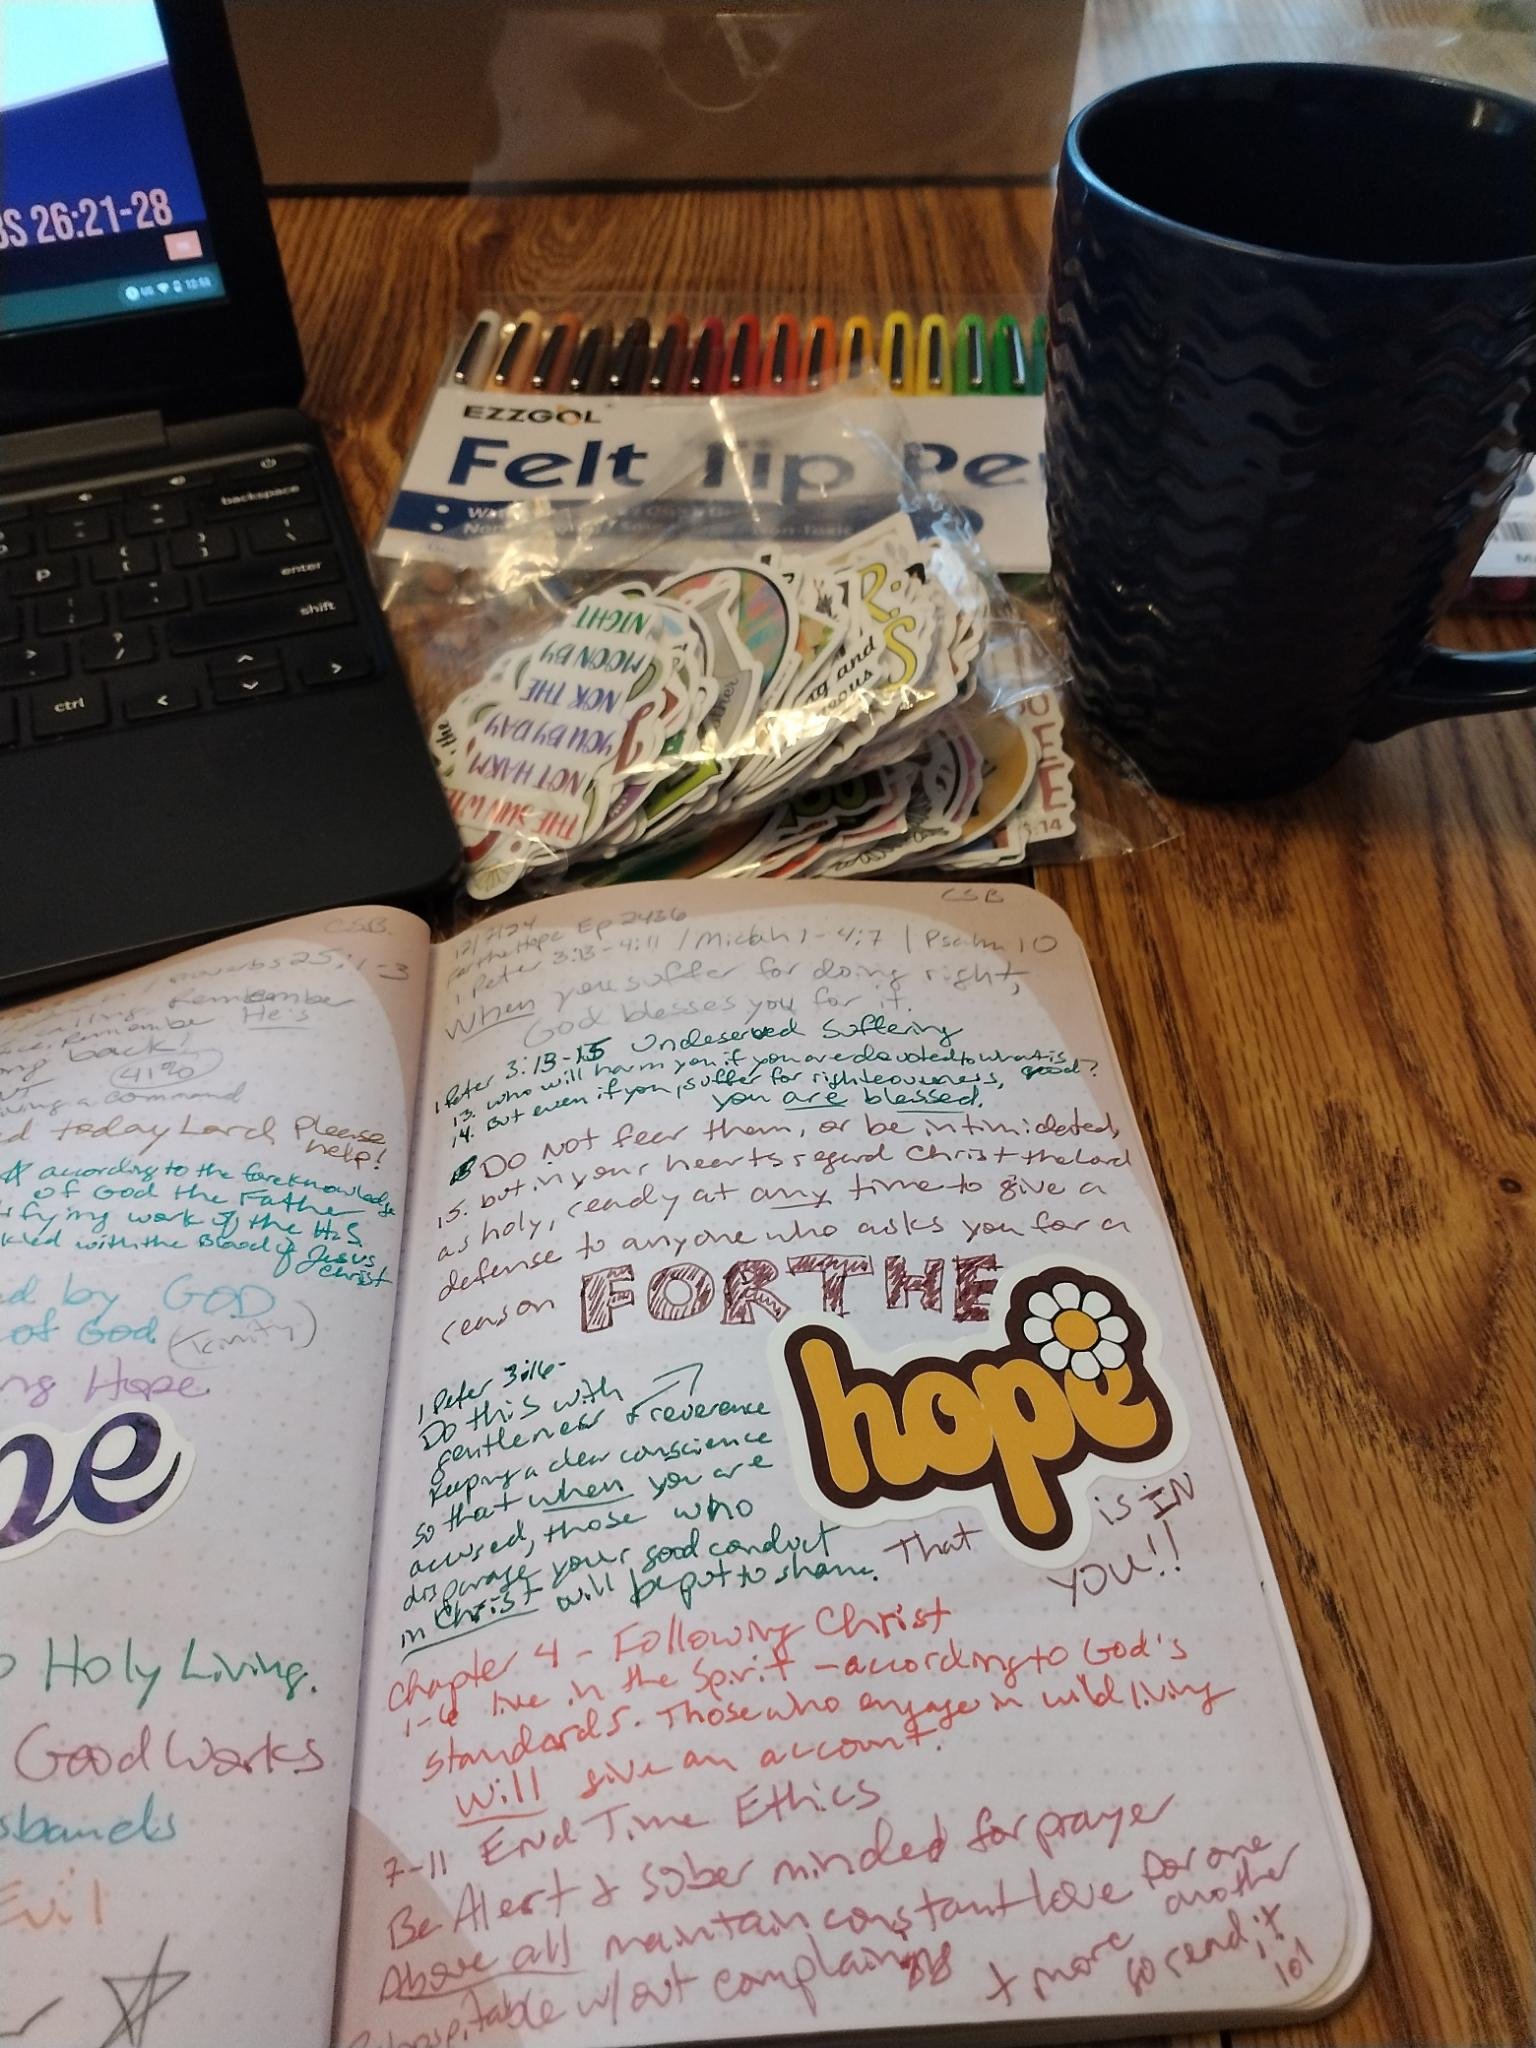 BS 26:21-28
12:53
backspace
enter
shift
ctrl
P
EZZGOL
Felt Tip Pe
NIGHT
MOON BY
NOR THE
YOU BY DAY
NOT HARM
THE SUN WI
and
5:14
CSB
25:1-3
Remember
Remember He's
back!
41%
giving a command
ed today Lord Please
help!
according to the foreknowledge
of God the Father
fying work of the H.S.
kled with the Blood of Jesus
Christ
ed by GOD
of God (Trinity)
ng Hope
pe
o Holy Living.
Good Works
sbands
Evil
CSB
12/7/24
For the Hope Ep 2436
1 Peter 3:13-4:11 / Micah 1-4:7 / Psalm 10
When you suffer for doing right,
God blesses you for it.
1 Peter 3:13-15 Undeserved Suffering
13. who will harm you if you are devoted to what is good?
14. But even if you suffer for righteousness,
you are blessed.
Do Not fear them, or be intimidated,
15. but in your hearts regard Christ the Lord
as holy, ready at any time to give a
defense to anyone who asks you for a
reason FOR THE
hope
That is IN
YOU!!
1 Peter 3:16-
Do this with
gentleness & reverence
keeping a clear conscience
so that when you are
accused, those who
disparage your good conduct
in Christ will be put to shame.
Chapter 4 - Following Christ
1-6 live in the Spirit - according to God's
standards. Those who engage in wild living
will give an account.
7-11 End Time Ethics
Be Alert & sober minded for prayer
Above all maintain constant love for one
another
hospitable w/out complaining
+ more so read it
lol